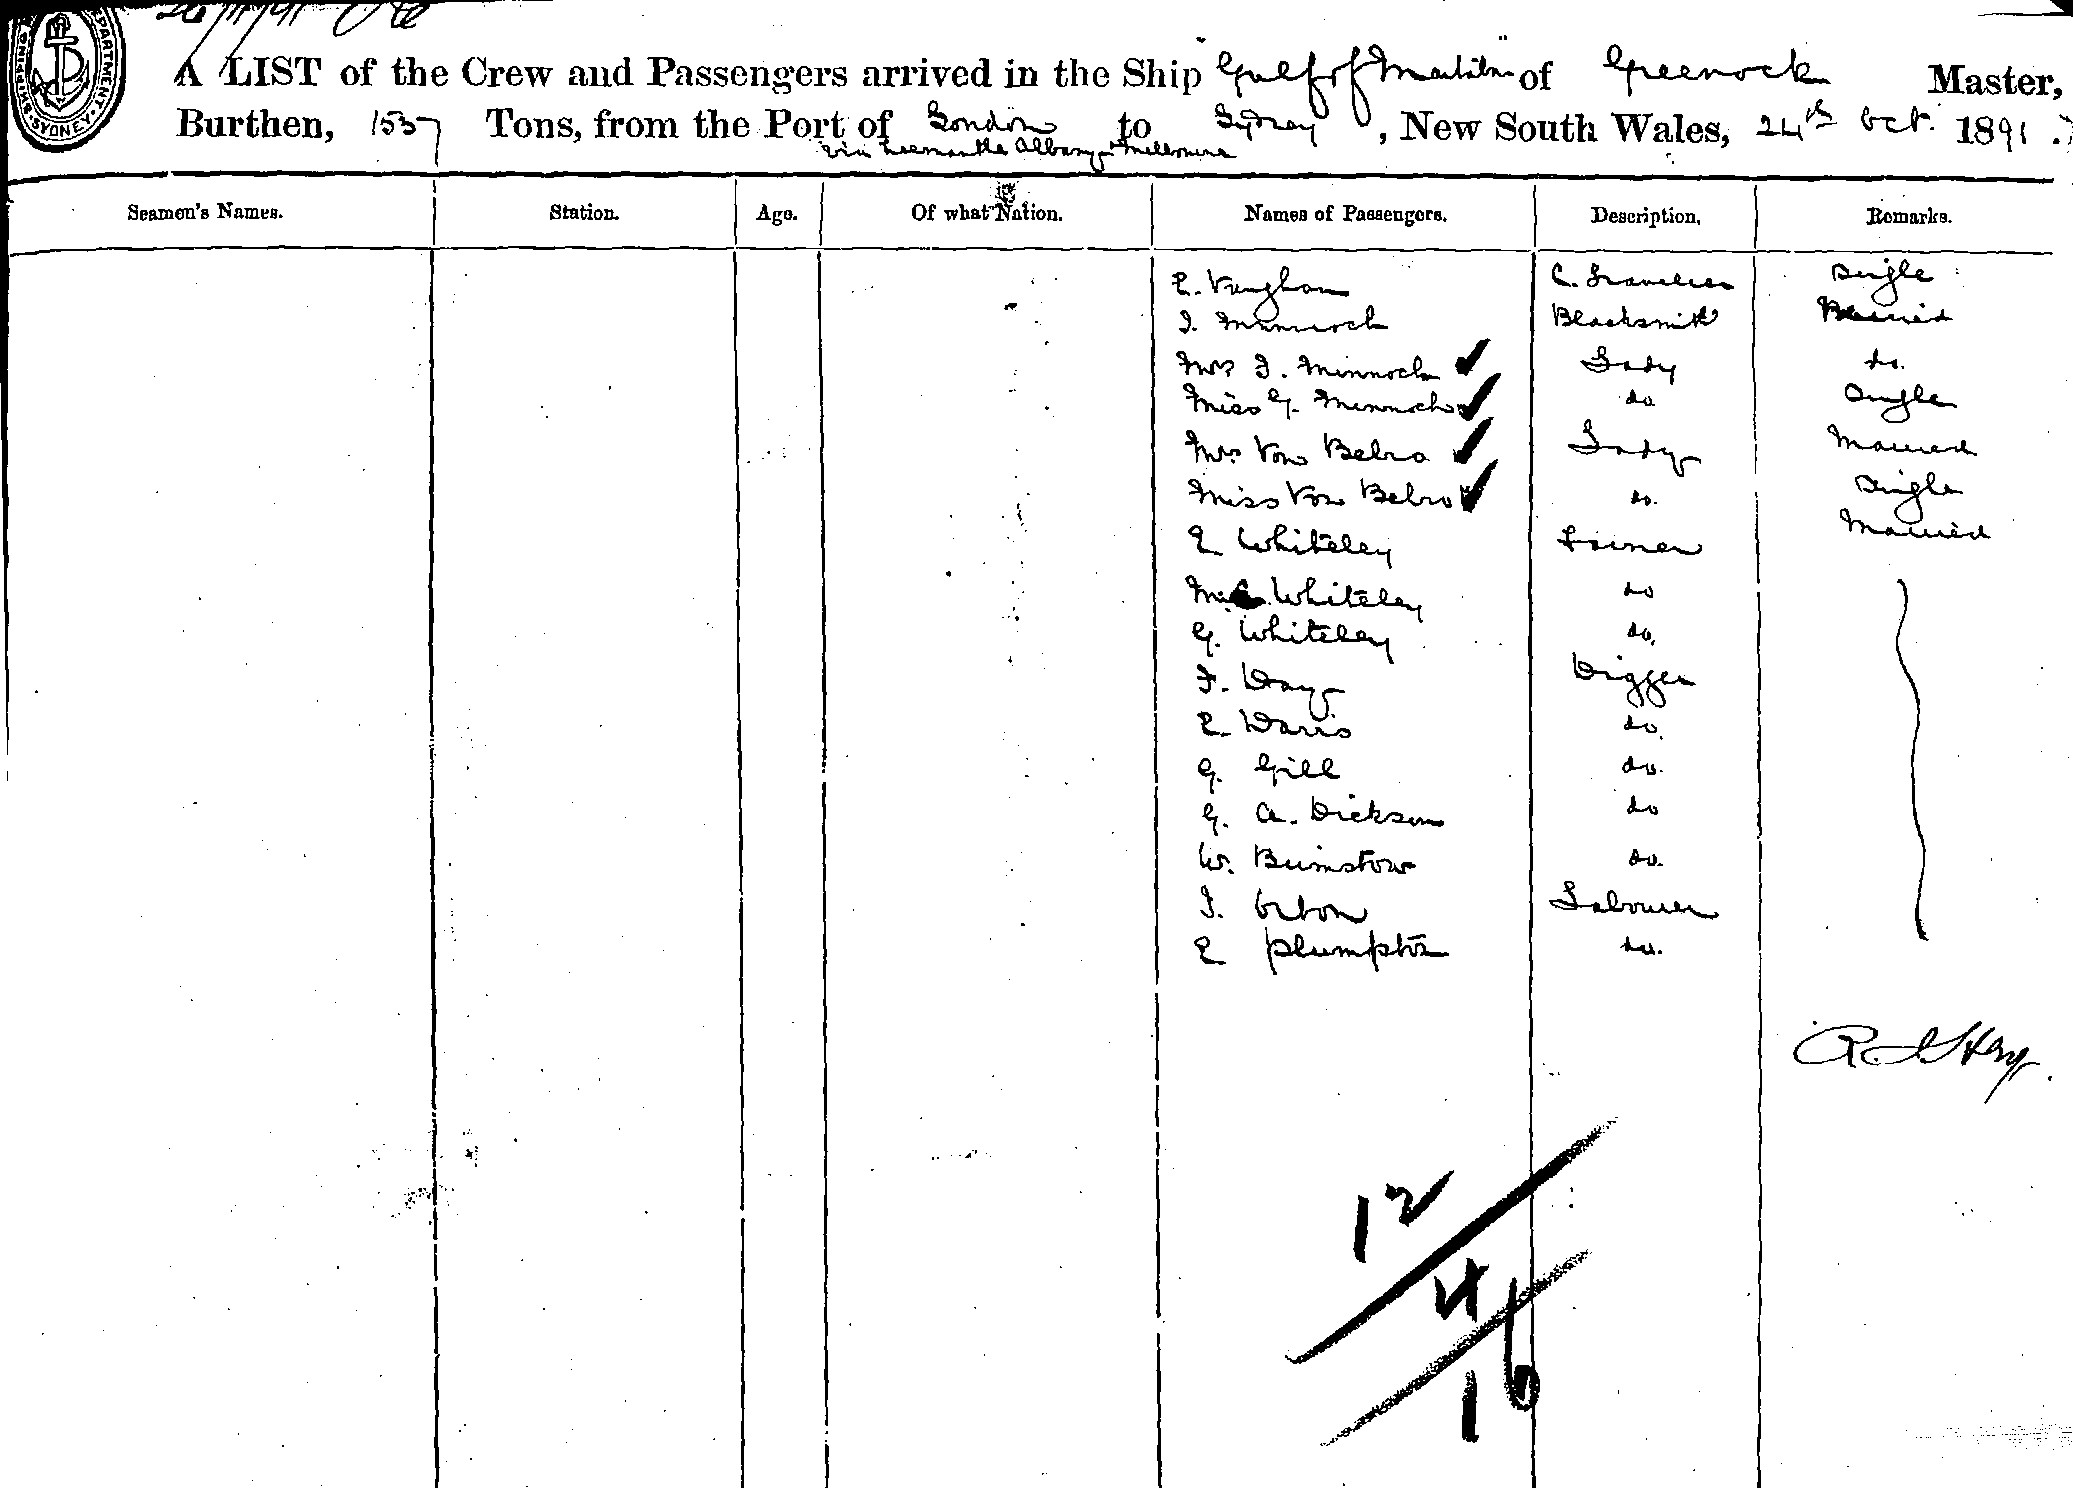 26/11/91
SHIPPING DEPARTMENT. SYDNEY.
A LIST of the Crew and Passengers arrived in the Ship "Gulf of Martaban" of Greenock Master,
Burthen, 1537 Tons, from the Port of London to Sydney, New South Wales, 24th Oct. 1891.
via Fremantle Albany & Melbourne
Seamen's Names. Station. Age. Of what Nation. Names of Passengers. Description. Remarks.
E. Vaughan C. Traveller Single
J. Minnoch Blacksmith Married
Mrs J. Minnoch Lady do.
Miss G. Minnoch do Single
Mrs Von Bebra Lady Married
Miss Von Bebra do. Single
E Whiteley Joiner Married
Whiteley do
G. Whiteley do.
F. Day Digger
E. Davis do.
G. Gill do.
G. A. Dickson do
W. Bumstow do.
J. Orton Labourer
E Plumpton do.
12
4
16